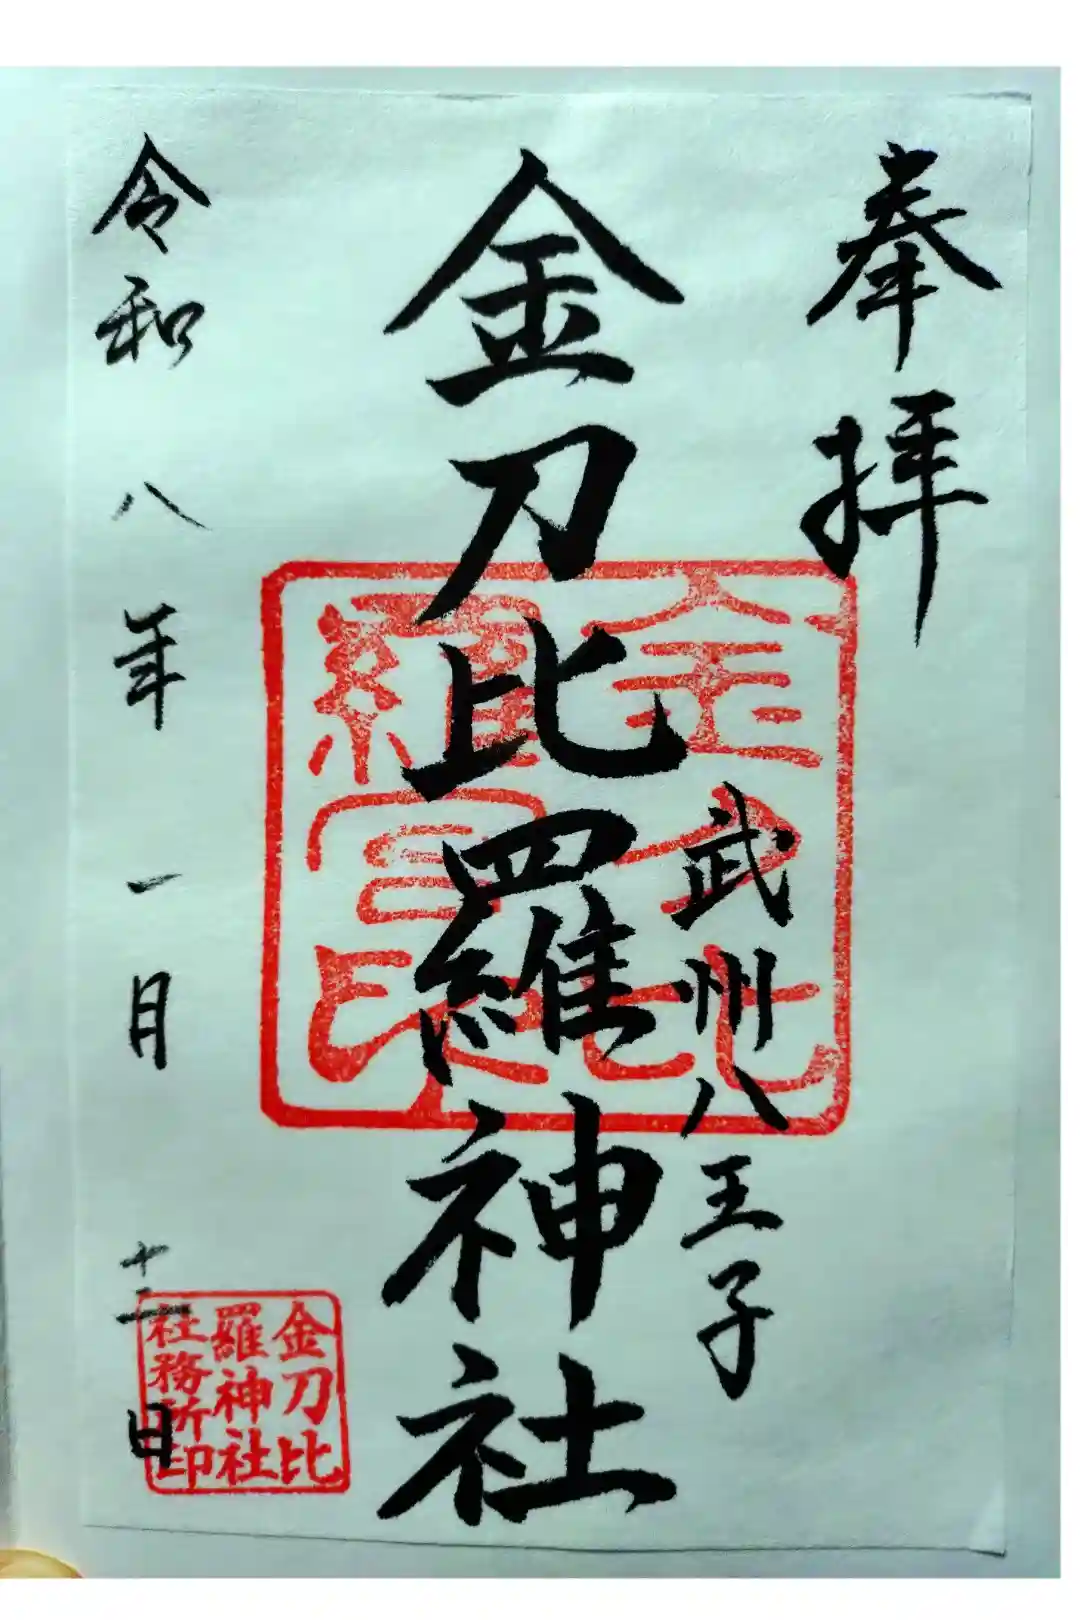 奉拝
武州八王子
金刀比羅神社
令和八年一月十二日
金刀比
羅宮印
金刀比
羅神社
社務所印